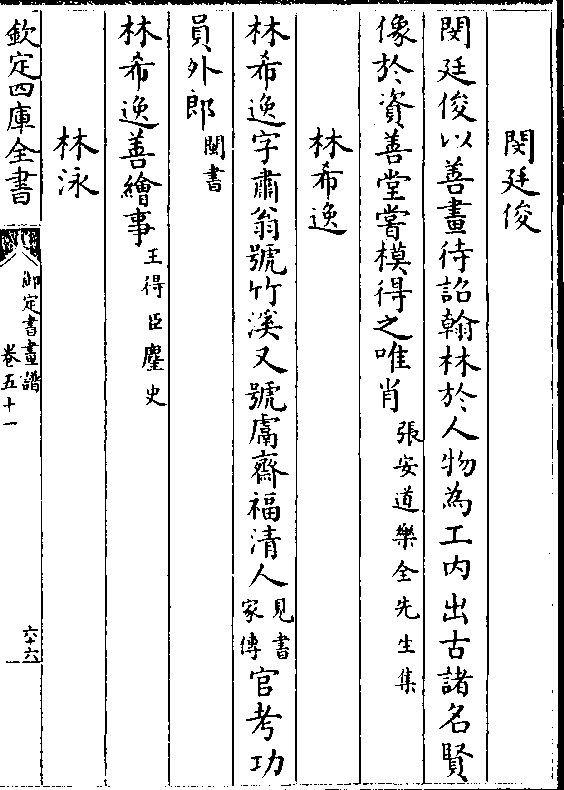 閔廷俊
閔廷俊以善畫待詔翰林於人物為工内出古諸名賢
像於資善堂嘗模得之唯肖張安道樂全先生集
林希逸
林希逸字肅翁號竹溪又號鬳齋福清人見書家傳官考功
員外郎閩書
林希逸善繪事王得臣麈史
林泳
欽定四庫全書
御定書畫譜
卷五十一
六十六